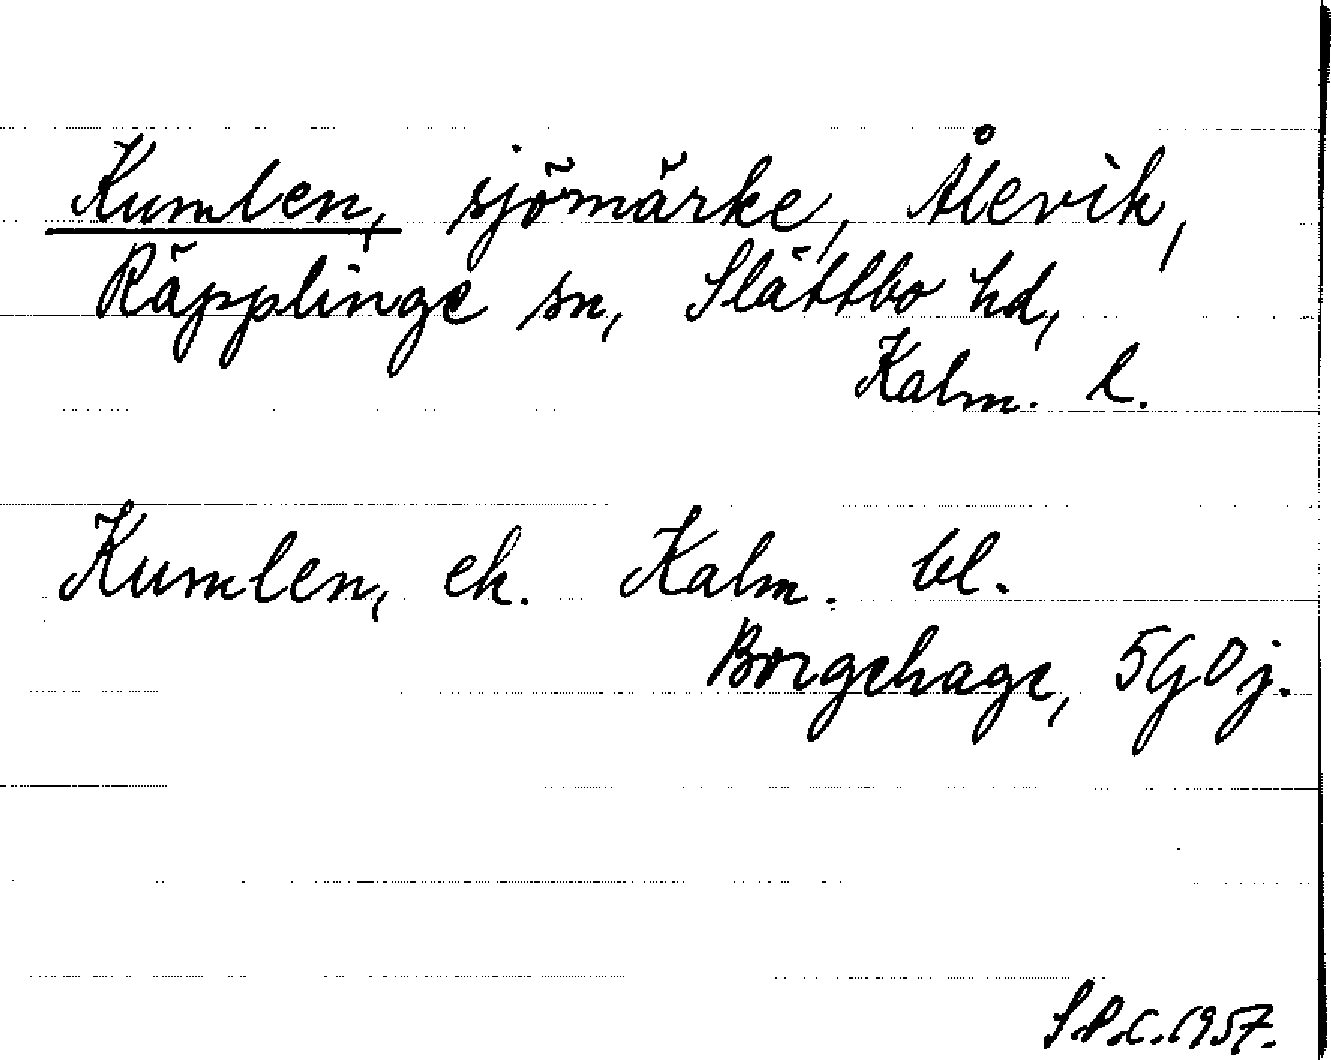 Kumlen, sjömärke, Ålevik,
Räpplinge sn, Slättbo hd,
Kalm. l.
Kumlen, ek. Kalm. bl.
Borgehage, 5G0j.
S.P.C. 1957.